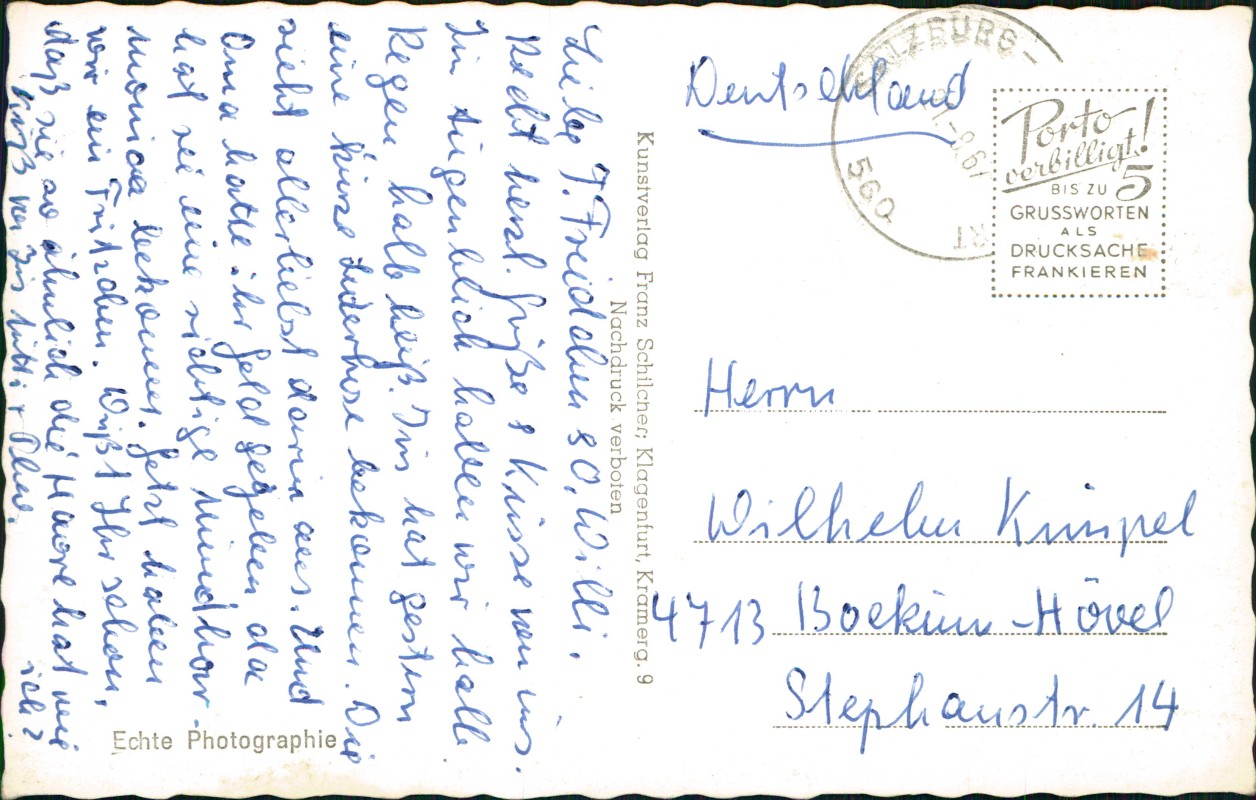 Liebe T. Friedchen u O. Willi,
Recht herzl. Grüße & Küsse von uns.
Im Augenblich haben wir halb
Regen halb heiß. Iris hat gestern
eine kurze Lederhose bekommen. Die
sieht allerliebst darin aus. Und
Oma hatte ihr Geld gegeben da
hat sie eine richtige Mundhar-
monica bekommen. Jetzt haben
wir ein Fritzchen. Wißt Ihr schon,
daß sie so ähnlich die Haare hat wie
ich?
Gruß von Iris
Echte Photographie
Kunstverlag Franz Schilcher, Klagenfurt, Kramerg. 9
Nachdruck verboten
Deutschland
SALZBURG-
560
Porto
verbilligt!
BIS ZU 5
GRUSSWORTEN
ALS
DRUCKSACHE
FRANKIEREN
Herrn
Wilhelm Kimpel
4713 Bockum-Hövel
Stephanstr. 14